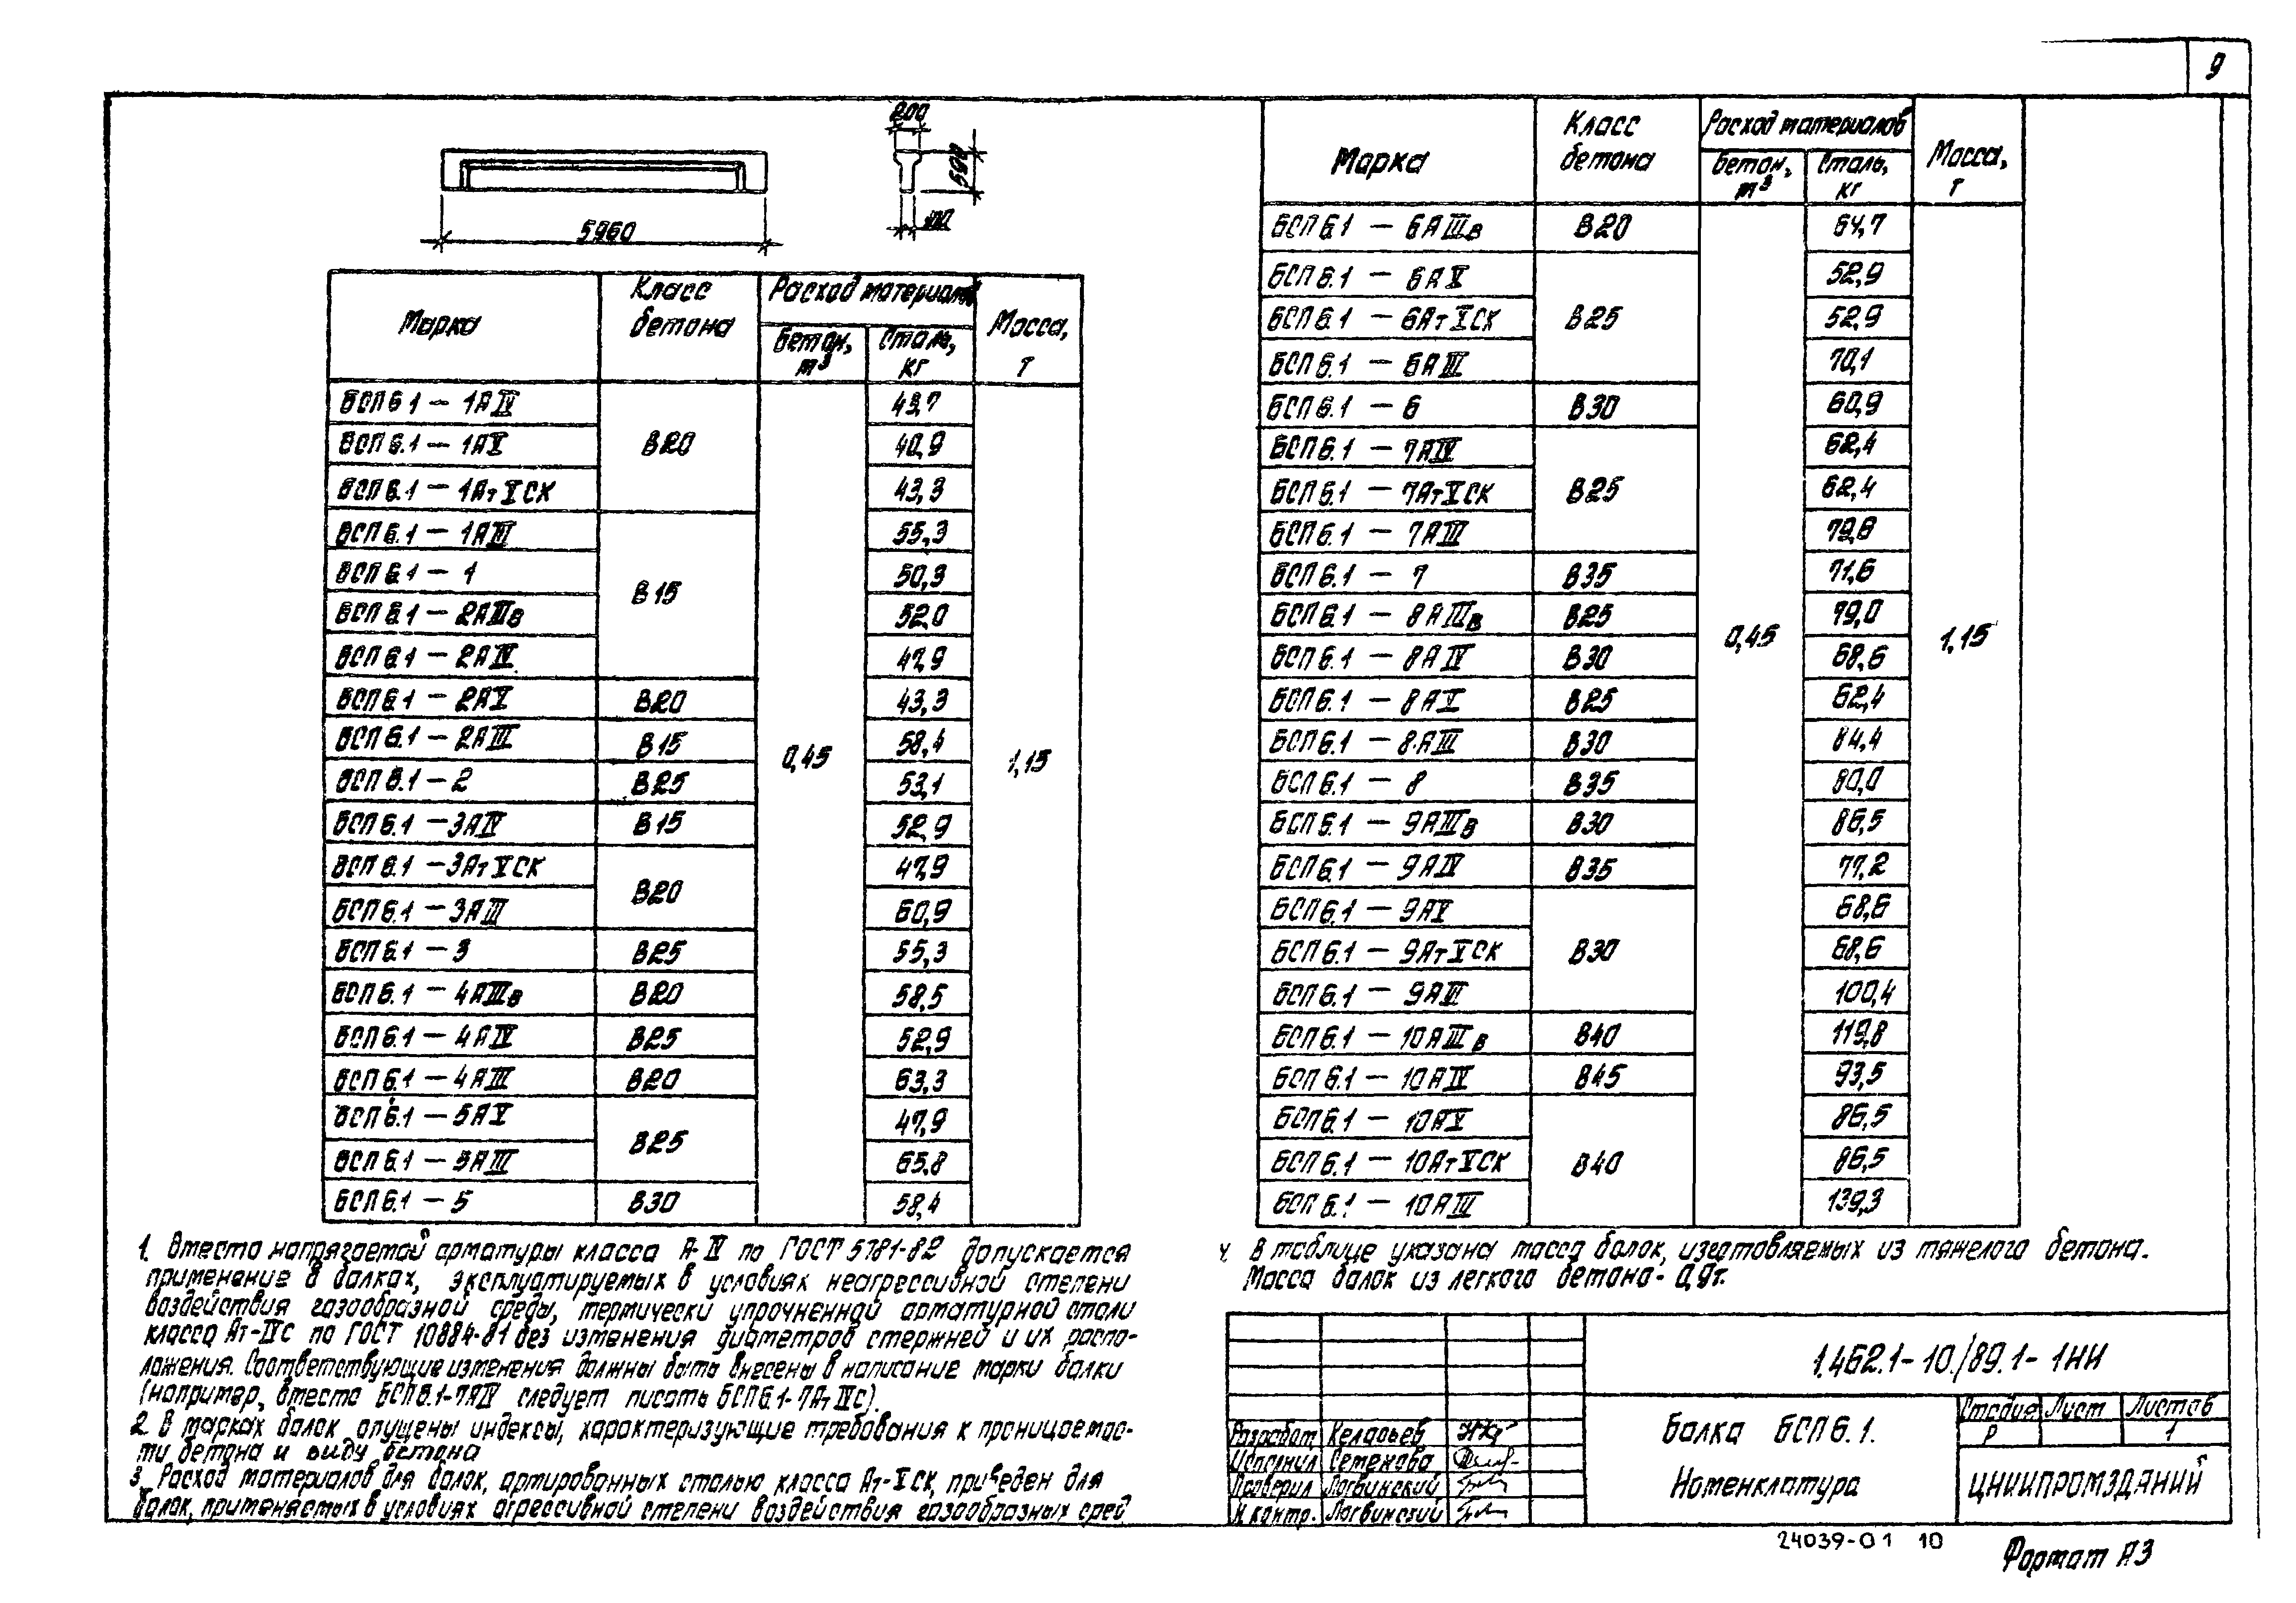 9
200
500
100
5960
Марка Класс бетона Расход материалов Масса, т
Бетон, м³ Сталь, кг
БСП 6.1 — 1АIV В20 0,45 43,7 1,15
БСП 6.1 — 1АV 40,9
БСП 6.1 — 1АтVСК 43,3
БСП 6.1 — 1АIII В15 55,3
БСП 6.1 — 1 50,3
БСП 6.1 — 2АIIIв 52,0
БСП 6.1 — 2АIV 47,9
БСП 6.1 — 2АV В20 43,3
БСП 6.1 — 2АIII В15 58,4
БСП 6.1 — 2 В25 53,1
БСП 6.1 — 3АIV В15 52,9
БСП 6.1 — 3АтVСК В20 47,9
БСП 6.1 — 3АIII 60,9
БСП 6.1 — 3 В25 55,3
БСП 6.1 — 4АIIIв В20 58,5
БСП 6.1 — 4АIV В25 52,9
БСП 6.1 — 4АIII В20 63,3
БСП 6.1 — 5АV В25 47,9
БСП 6.1 — 5АIII 65,8
БСП 6.1 — 5 В30 58,4
Марка Класс бетона Расход материалов Масса, т
Бетон, м³ Сталь, кг
БСП 6.1 — 6АIIIв В20 0,45 64,7 1,15
БСП 6.1 — 6АV В25 52,9
БСП 6.1 — 6АтVСК 52,9
БСП 6.1 — 6АIII 70,1
БСП 6.1 — 6 В30 60,9
БСП 6.1 — 7АIV В25 62,4
БСП 6.1 — 7АтVСК 62,4
БСП 6.1 — 7АIII 79,6
БСП 6.1 — 7 В35 71,6
БСП 6.1 — 8АIIIв В25 79,0
БСП 6.1 — 8АIV В30 68,6
БСП 6.1 — 8АV В25 62,4
БСП 6.1 — 8АIII В30 84,4
БСП 6.1 — 8 В35 80,0
БСП 6.1 — 9АIIIв В30 86,5
БСП 6.1 — 9АIV В35 77,2
БСП 6.1 — 9АV В30 68,6
БСП 6.1 — 9АтVСК 68,6
БСП 6.1 — 9АIII 100,4
БСП 6.1 — 10АIIIв В40 119,8
БСП 6.1 — 10АIV В45 93,5
БСП 6.1 — 10АV В40 86,5
БСП 6.1 — 10АтVСК 86,5
БСП 6.1 — 10АIII 139,3
1. Вместо напрягаемой арматуры класса А-IV по ГОСТ 5781-82 допускается
применение в балках, эксплуатируемых в условиях неагрессивной степени
воздействия газообразной среды, термически упрочненной арматурной стали
класса Ат-IVс по ГОСТ 10884-81 без изменения диаметров стержней и их распо-
ложения. Соответствующие изменения должны быть внесены в написание марки балки
(например, вместо БСП6.1-7АIV следует писать БСП6.1-7АтIVС).
2. В марках балок опущены индексы, характеризующие требования к проницаемос-
ти бетона и виду бетона
3. Расход материалов для балок, армированных сталью класса Ат-VСК, приведен для
балок, применяемых в условиях агрессивной степени воздействия газообразных сред
4. В таблице указана масса балок, изготовляемых из тяжелого бетона.
Масса балок из легкого бетона - 0,9т.
1.462.1-10./89.1-1НИ
Балка БСП6.1.
Номенклатура
Стадия Лист Листов
Р 1
ЦНИИПРОМЗДАНИЙ
Разработ.
Исполнил Семенова
Проверил Логвинский
Н.контр. Логвинский
24039-01 10
Формат А3